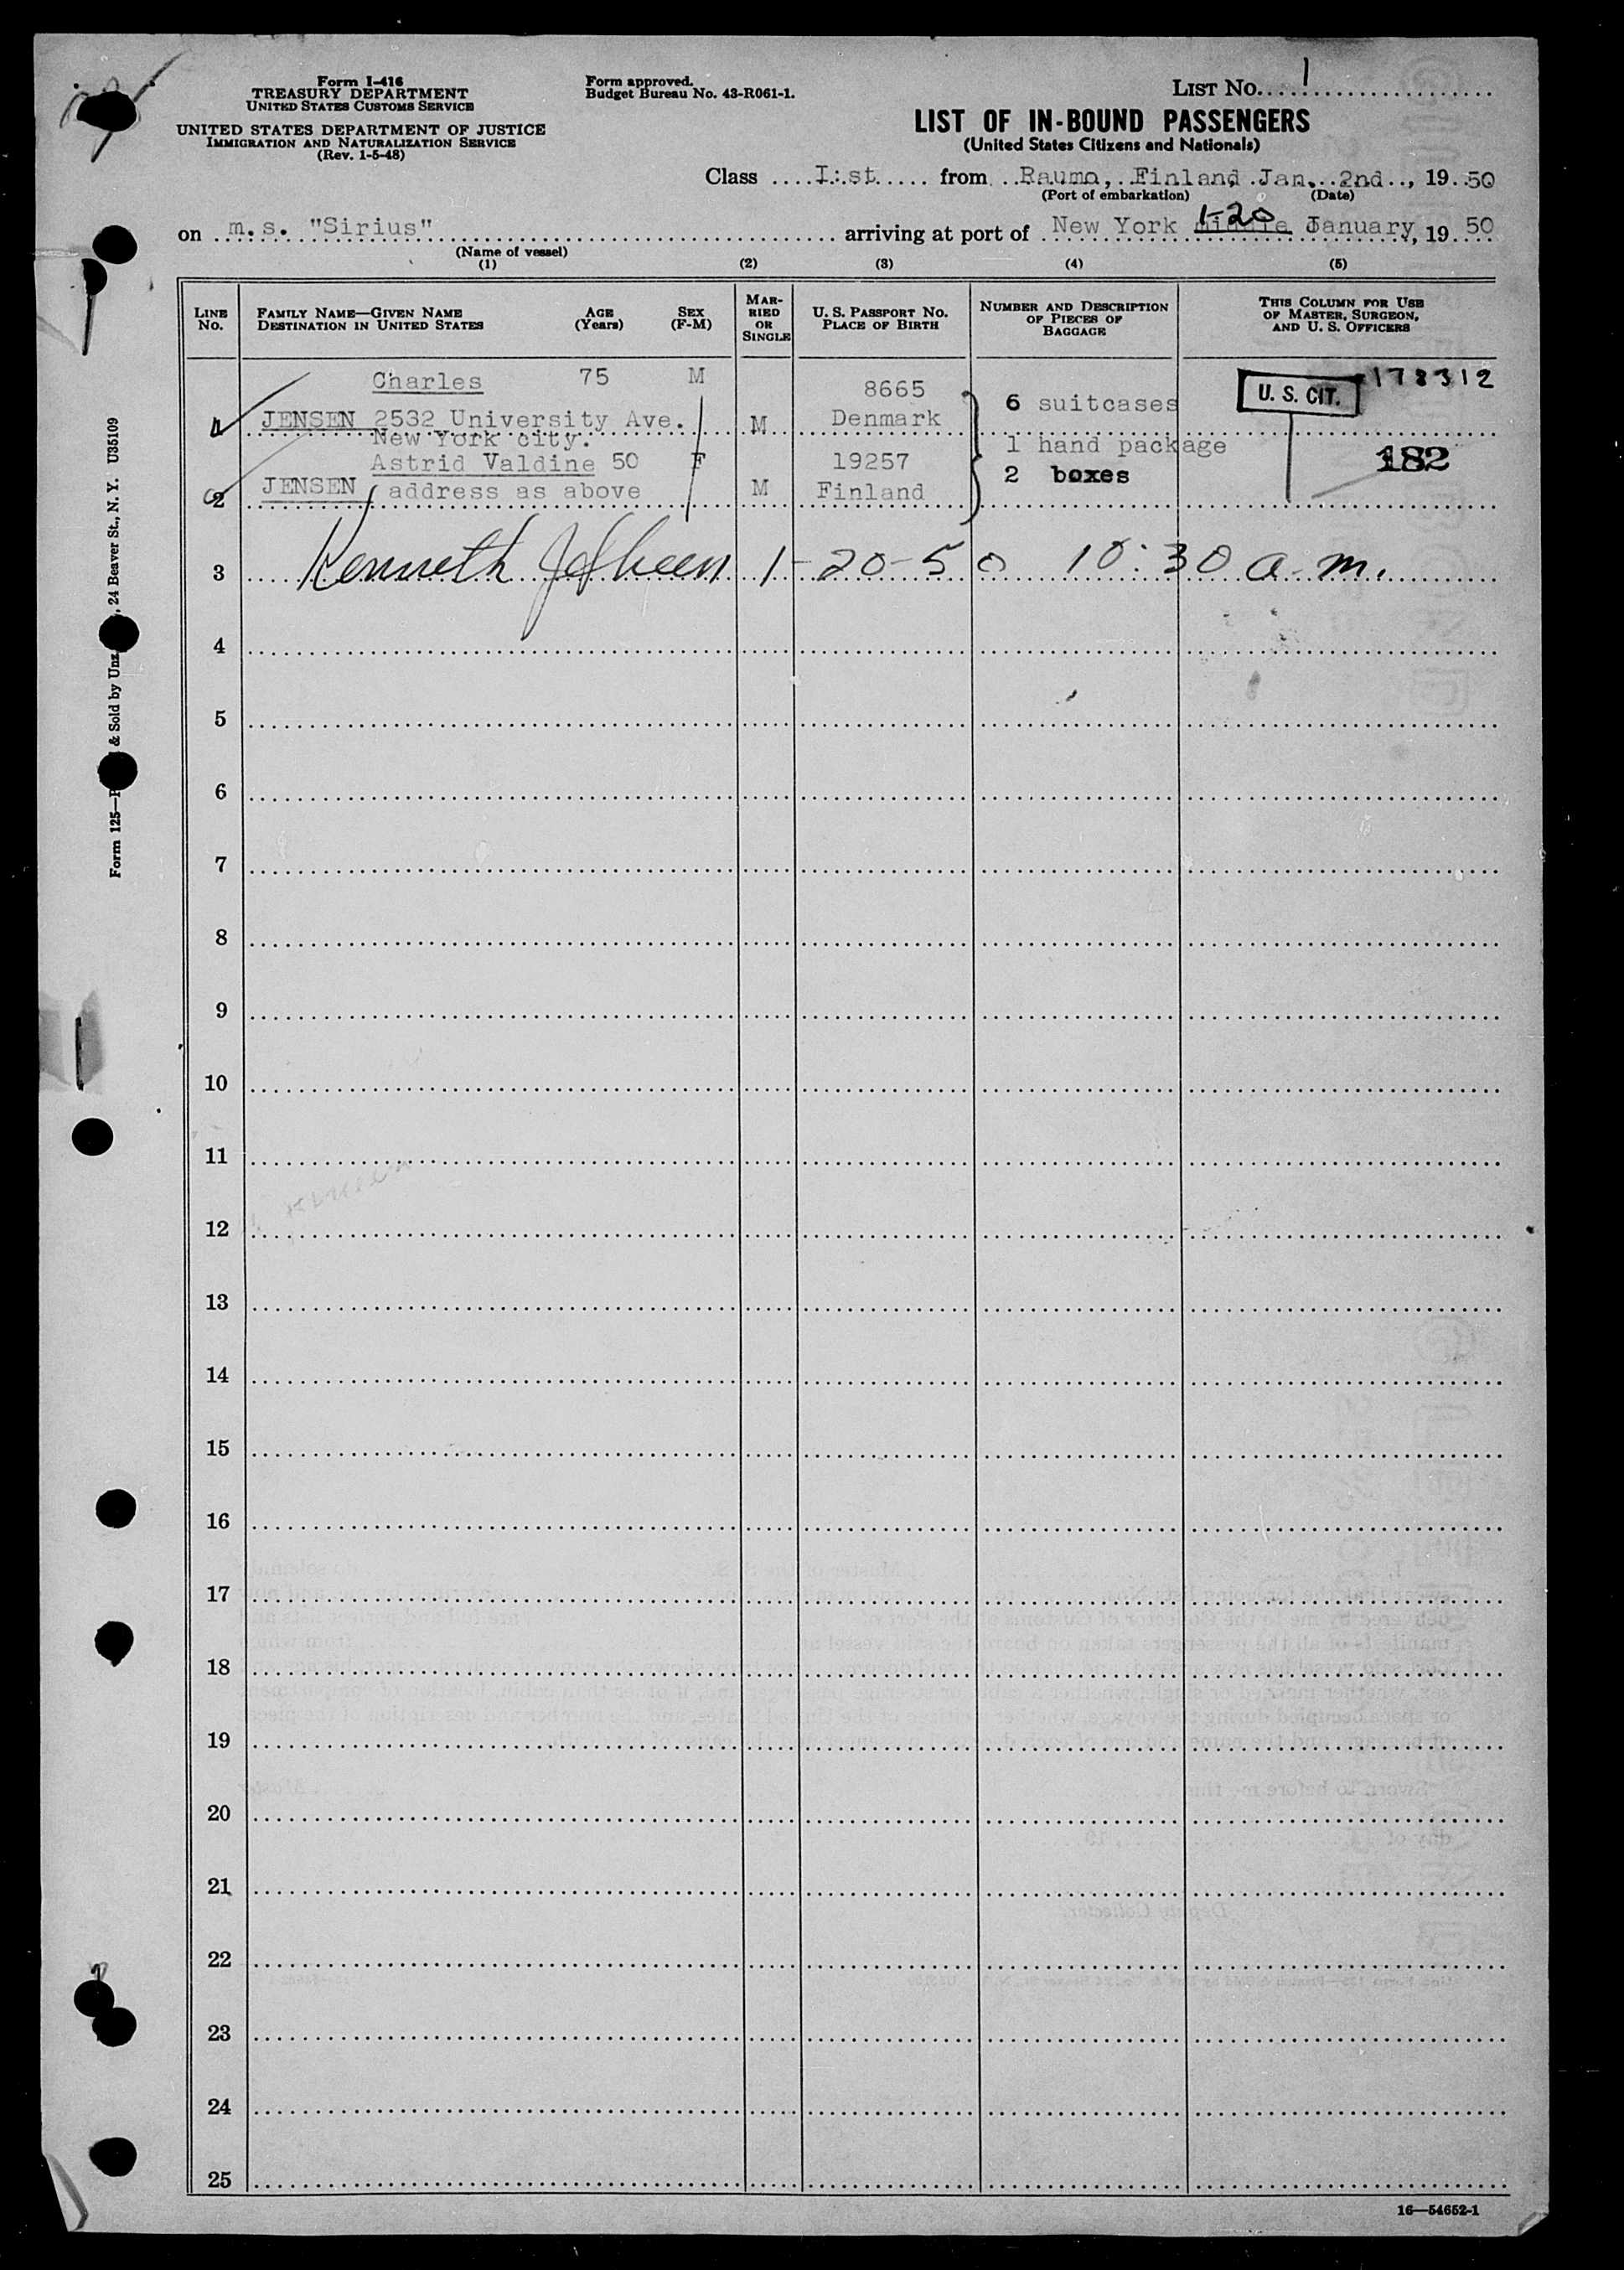 Form I-416
TREASURY DEPARTMENT
UNITED STATES CUSTOMS SERVICE
UNITED STATES DEPARTMENT OF JUSTICE
IMMIGRATION AND NATURALIZATION SERVICE
(Rev. 1-5-48)
Form approved.
Budget Bureau No. 43-R061-1.
LIST No. 1
LIST OF IN-BOUND PASSENGERS
(United States Citizens and Nationals)
Class I:st from Raumo, Finland, Jan. 2nd, 19 50
(Port of embarkation) (Date)
1-20
on m.s. "Sirius" arriving at port of New York middle January, 19 50
(Name of vessel)
(1) (2) (3) (4) (5)
LINE No.
FAMILY NAME—GIVEN NAME
DESTINATION IN UNITED STATES
AGE (Years)
SEX (F-M)
MARRIED OR SINGLE
U. S. PASSPORT No.
PLACE OF BIRTH
NUMBER AND DESCRIPTION OF PIECES OF BAGGAGE
THIS COLUMN FOR USE OF MASTER, SURGEON, AND U. S. OFFICERS
Charles 75 M 8665 U. S. CIT. 178312
1 JENSEN 2532 University Ave. M Denmark 6 suitcases
New York city. 1 hand package
Astrid Valdine 50 F 19257 2 boxes 182
2 JENSEN address as above M Finland
3 Kenneth 1-20-50 10:30 a.m.
4
5
6
7
8
9
10
11
12
13
14
15
16
17
18
19
20
21
22
23
24
25
16—54652-1
Form 125— & Sold by Unz , 24 Beaver St., N. Y. U35109